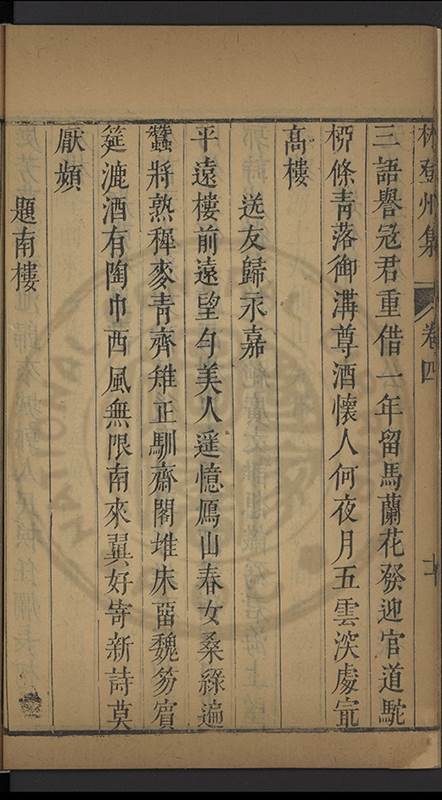 林登州集 卷四 十
三語譽冠君重借一年留馬蘭花發迎官道駝
桞條青落御溝尊酒懷人何夜月五雲深處㝎
高樓
送友歸永嘉
平遠樓前遠望勻美人遥憶鴈山春女桑綠遍
蠶將熟穉麥青齊雉正馴齋閣堆床留魏笏賓
筵漉酒有陶巾西風無限南來翼好寄新詩莫
厭頻
題南樓